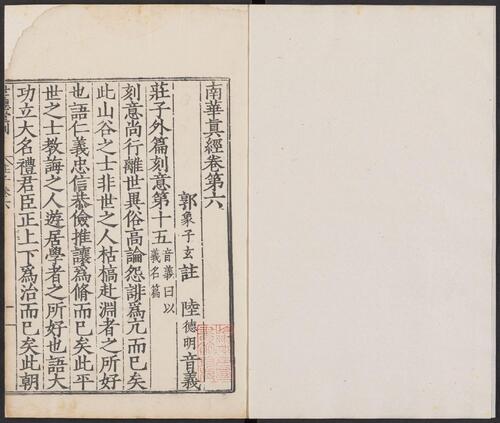 南華真經卷第六
郭象子玄註 陸德明音義
莊子外篇刻意第十五 音義曰以義名篇
刻意尚行離世異俗高論怨誹爲亢而已矣
此山谷之士非世之人枯槁赴淵者之所好
也語仁義忠信恭儉推讓爲脩而已矣此平
世之士教誨之人遊居學者之所好也語大
功立大名禮君臣正上下爲治而已矣此朝